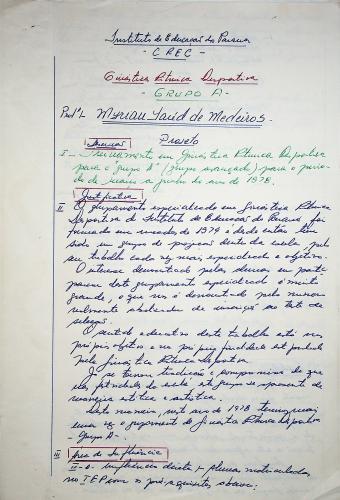 Instituto de Educação do Paraná
- CREC -
Ginástica Rítmica Desportiva
- GRUPO A -
Profª: Myrian de Medeiros -
Projeto
I - Treinamento em Ginástica Rítmica Desportiva
para o "grupo A" (grupo avançado) para o perío-
do de maio a junho do ano de 1978.
Justificativa
II O grupamento especializado em Ginástica Rítmica
Desportiva do Instituto de Educação do Paraná foi
formado em meados de 1974 e desde então tem
sido um grupo de projeção dentro da escola, pelo
seu trabalho cada vez mais especializado e objetivo.
O interesse demonstrado pelas alunas em parti-
ciparem deste grupamento especializado é muito
grande, o que nos é demonstrado pelo número
de
seleção.
O sentido educativo deste trabalho está no
próprio objetivo e na própria finalidade
pela Ginástica Rítmica Desportiva.
Já se tornou tradição e compromisso de que
nas festividades da escola este grupo se apresente de
maneira estética e artística.
Desta maneira, neste ano de 1978 teremos mais
uma vez o grupamento de Ginástica Rítmica Desportiva
- Grupo A -
III Área de Influência
II-a. influência direta: alunas matriculadas
no IEP com os pré-requisitos abaixo: